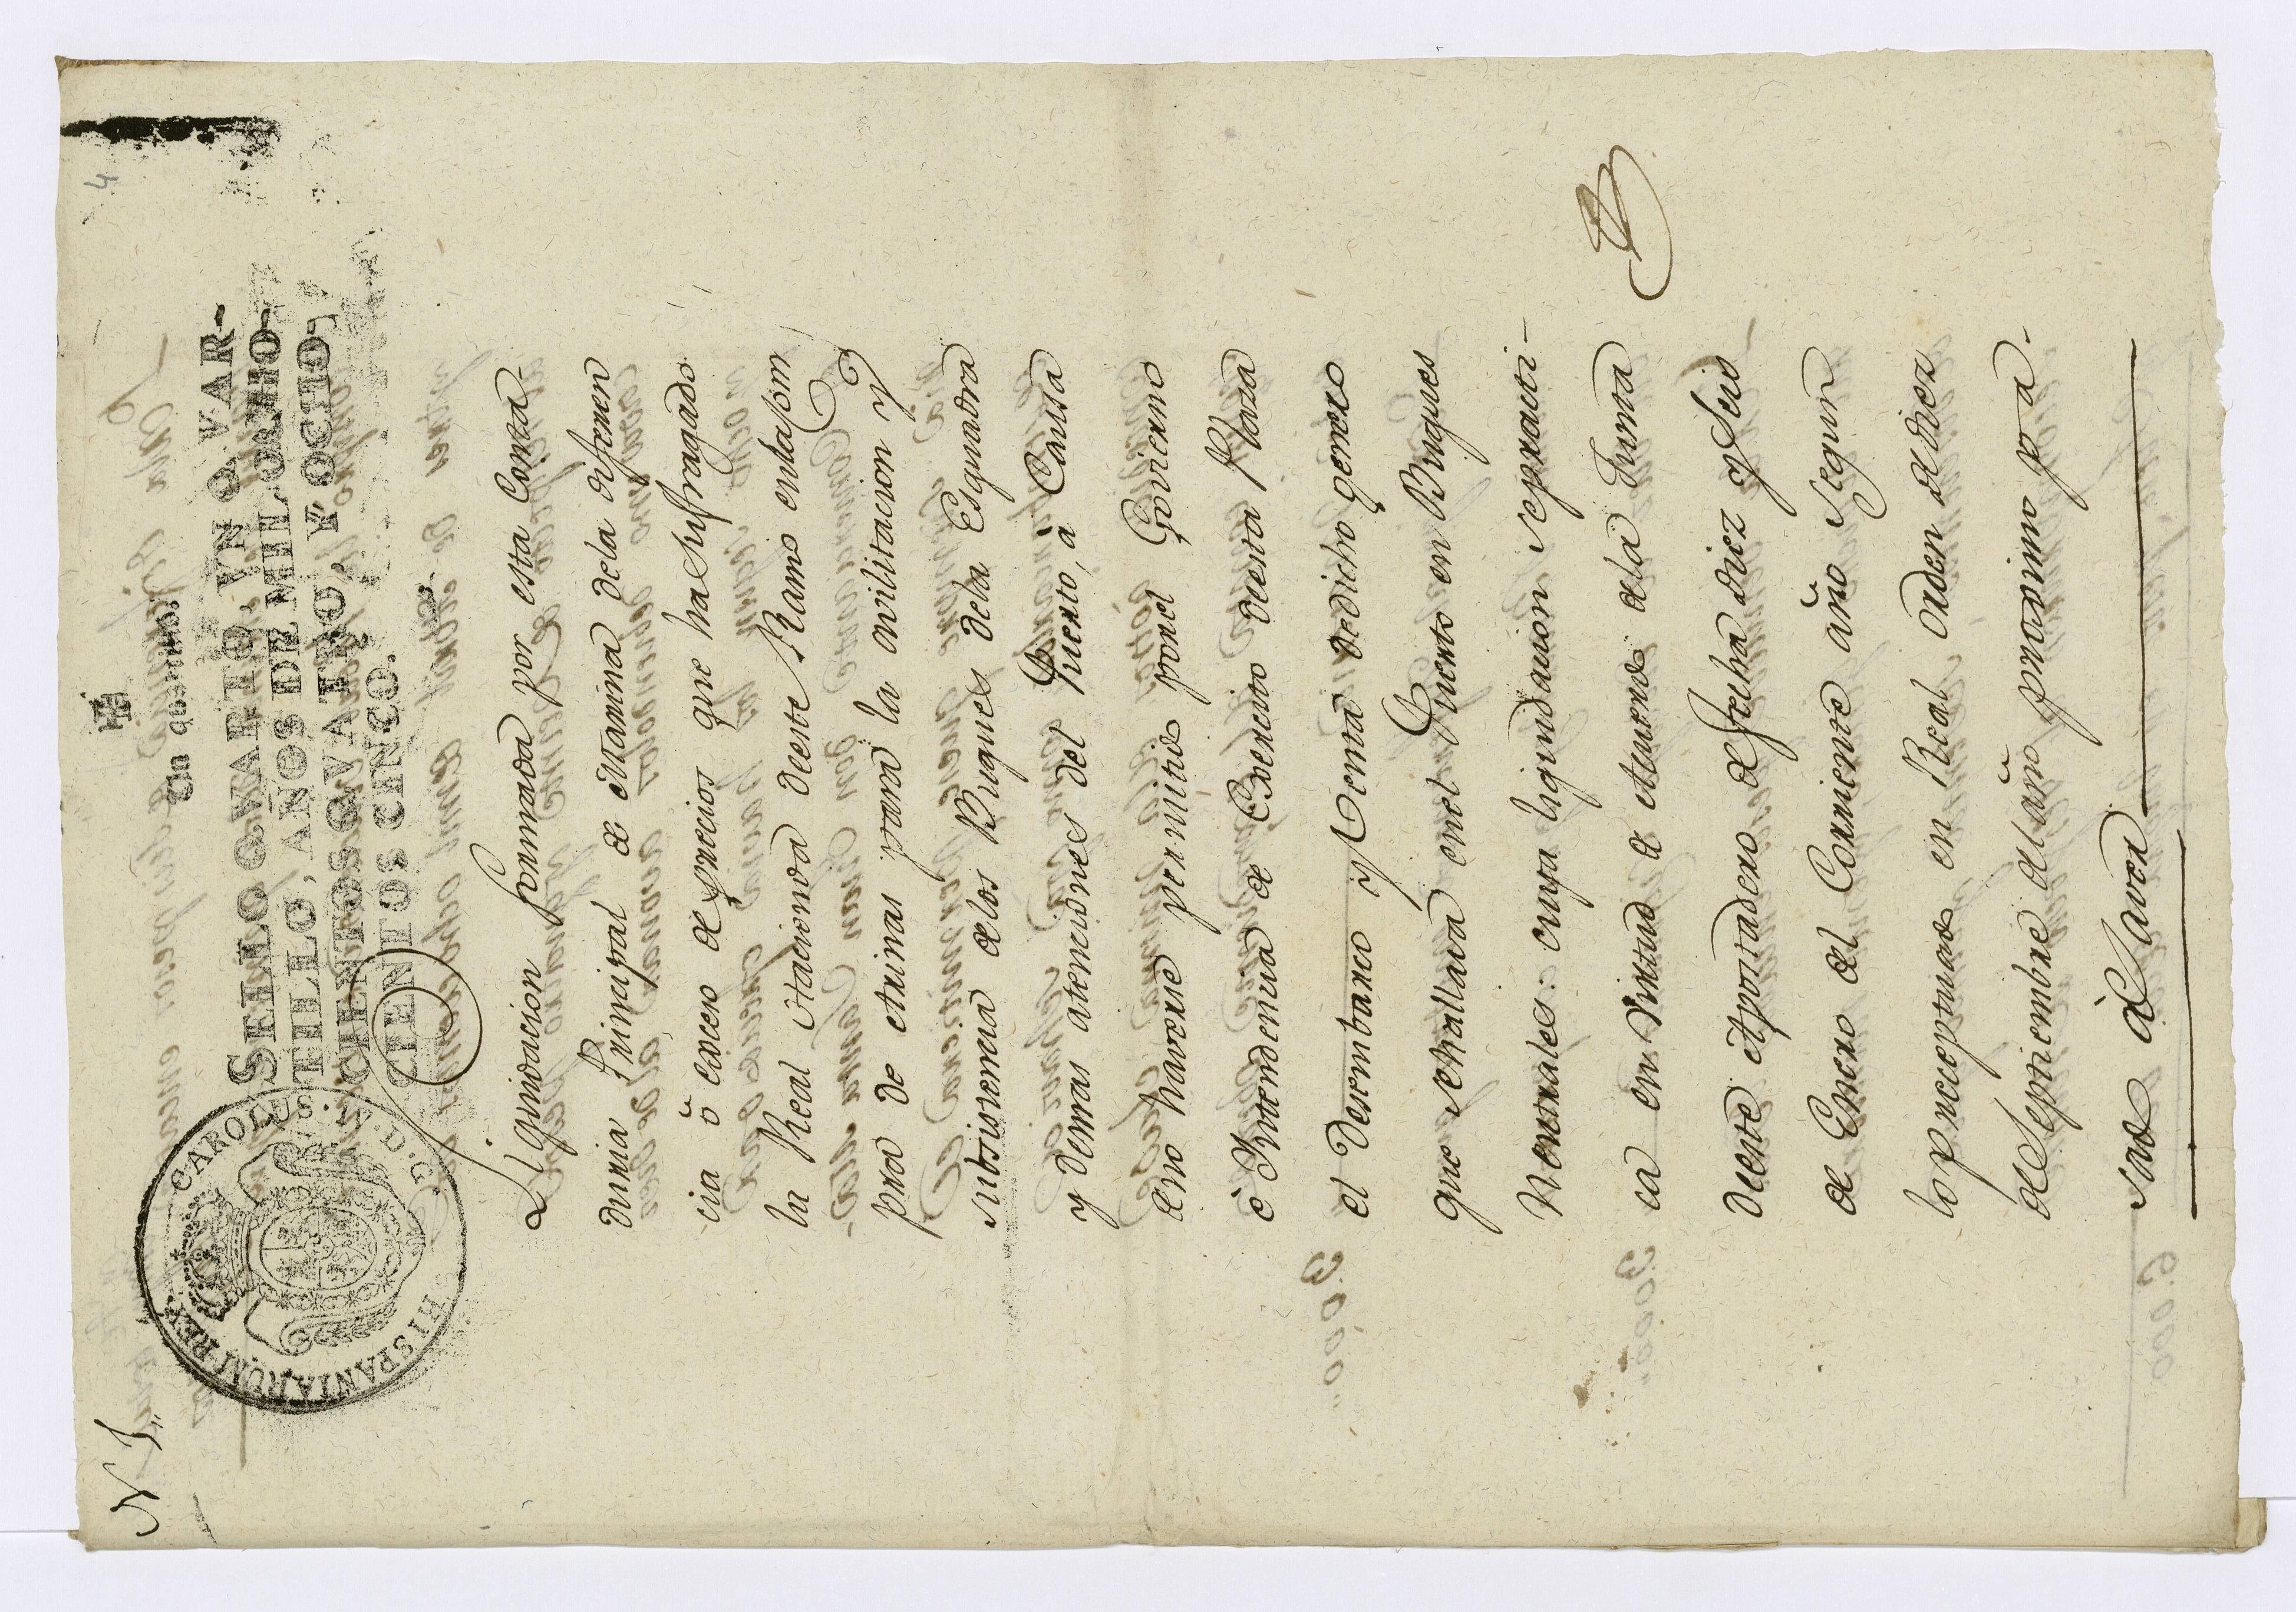 N 1,,
4
Un quartillo.
SELLO QVARTO, VN QVAR-
TILLO, AÑOS DE MIL OCHO-
CIENTOS QVATRO, Y OCHO-
CIENTOS CINCO.
CAROLUS. IV. D. G. HISPANIARUM REX
Liquidacion formada por esta Conta-
duria Principal de Marina dela diferen
cia ò exceso de precios que ha sufragado
la Real Hacienda deeste Ramo enla Com
pra de Arinas para la militacion y
subsistencia delos Buques dela Esquadra
y demas atenciones del Puerto, à Causa
deno haverse permitido porel Govierno
è Intendencia de Exercito deesta Plaza
el Desembarco y Venta dedicho genero
que sehallava enel Puerto en Buques
Neutrales: cuya liquidacion sepracti-
ca en Virtud de Acuerdo dela Junta
deeste Apostadero defecha diez y Seis
de Enero del Corriente año segun
lo preceptuado en Real orden de diez
deSeptiembre del año proximo pa-
sado àSaver